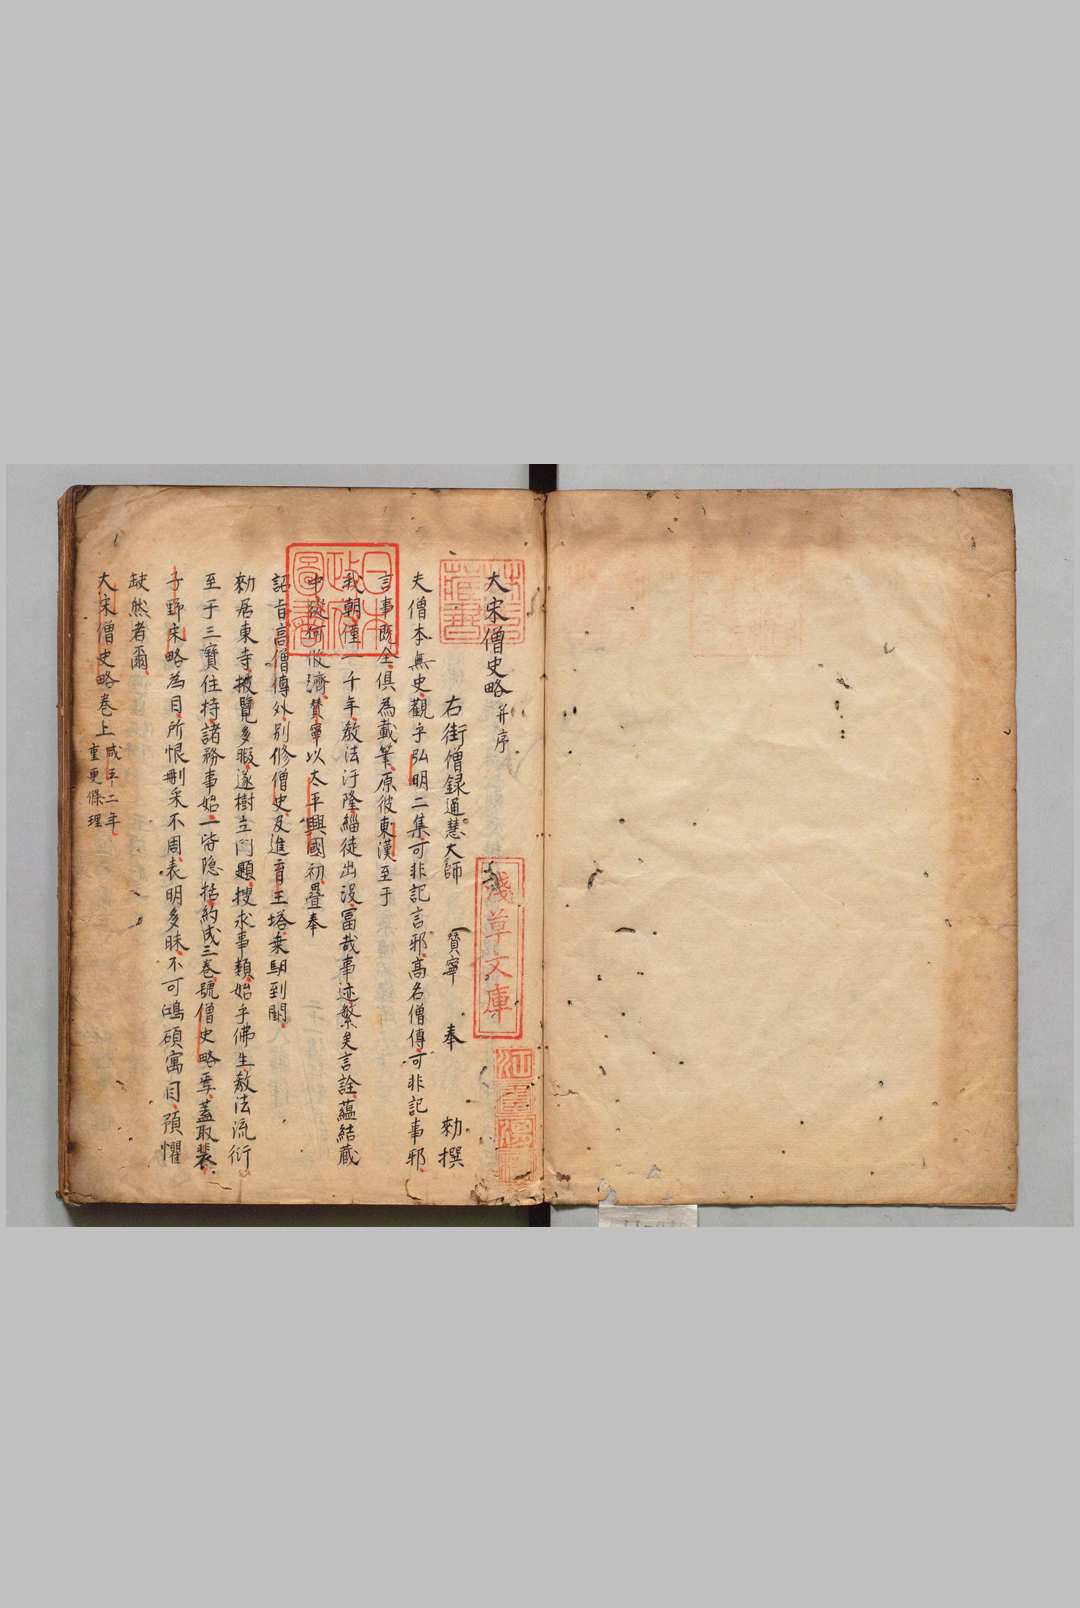 大宋僧史略并序
右街僧録通慧大師 賛寧 奉 勅撰
夫僧本無史觀乎弘明二集可非記言邪高名僧傳可非記事邪
言事既全俱為載筆原彼東漢至于
我朝僅一千年教法汙隆緇徒出没富哉事迹繁矣言詮蘊結藏
中從何攸濟賛寧以太平興國初疊奉
詔旨高僧傳外別修僧史及進育王塔乗馹到闕
勅居東寺披覽多暇遂樹立門題搜求事類始乎佛生教法流衍
至于三寳住持諸務事始一皆隐括約成三卷號僧史略焉蓋取裴
子野宋略為目所恨刪采不周表明多昧不可鴻碩寓目預懼
缺然者爾
大宋僧史略卷上 咸平二年
重更條理
日本
政府
圖書
淺草文庫